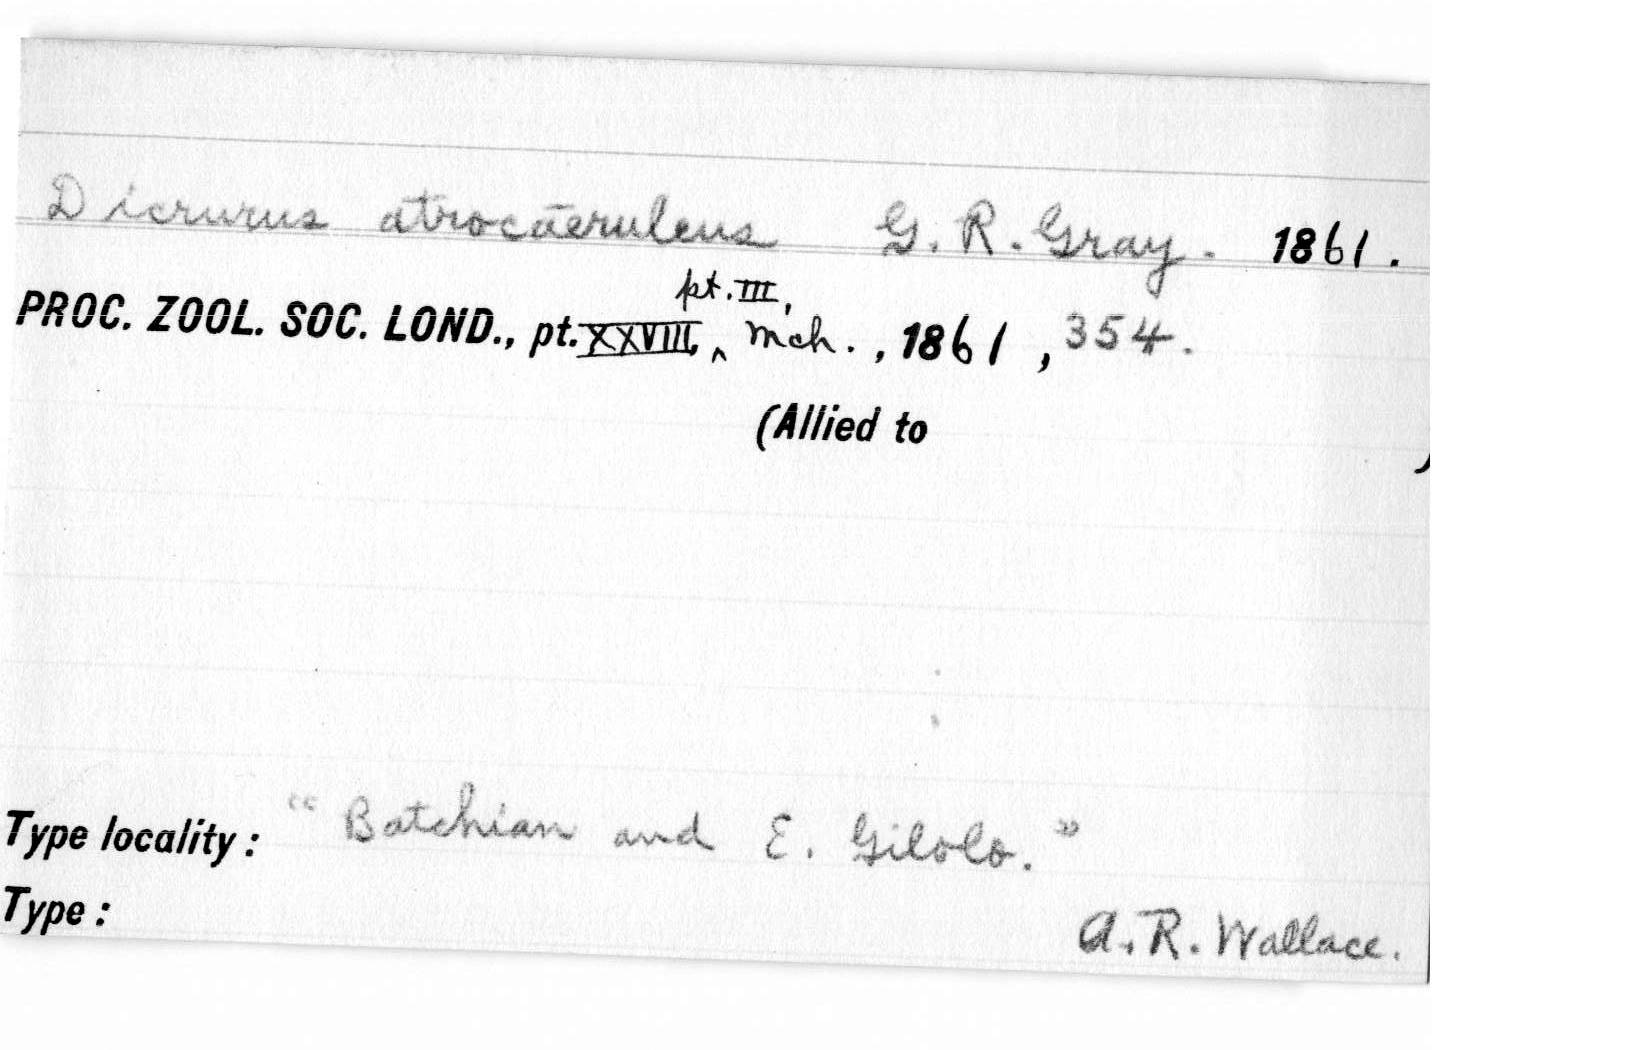 Dicrurus atrocaeruleus G. R. Gray. 1861.
pt. III,
PROC. ZOOL. SOC. LOND., pt. XXVIII, ‸ Mch. , 1861 , 354.
(Allied to )
Type locality : " Batchian and E. Gilolo. "
Type :
A. R. Wallace.